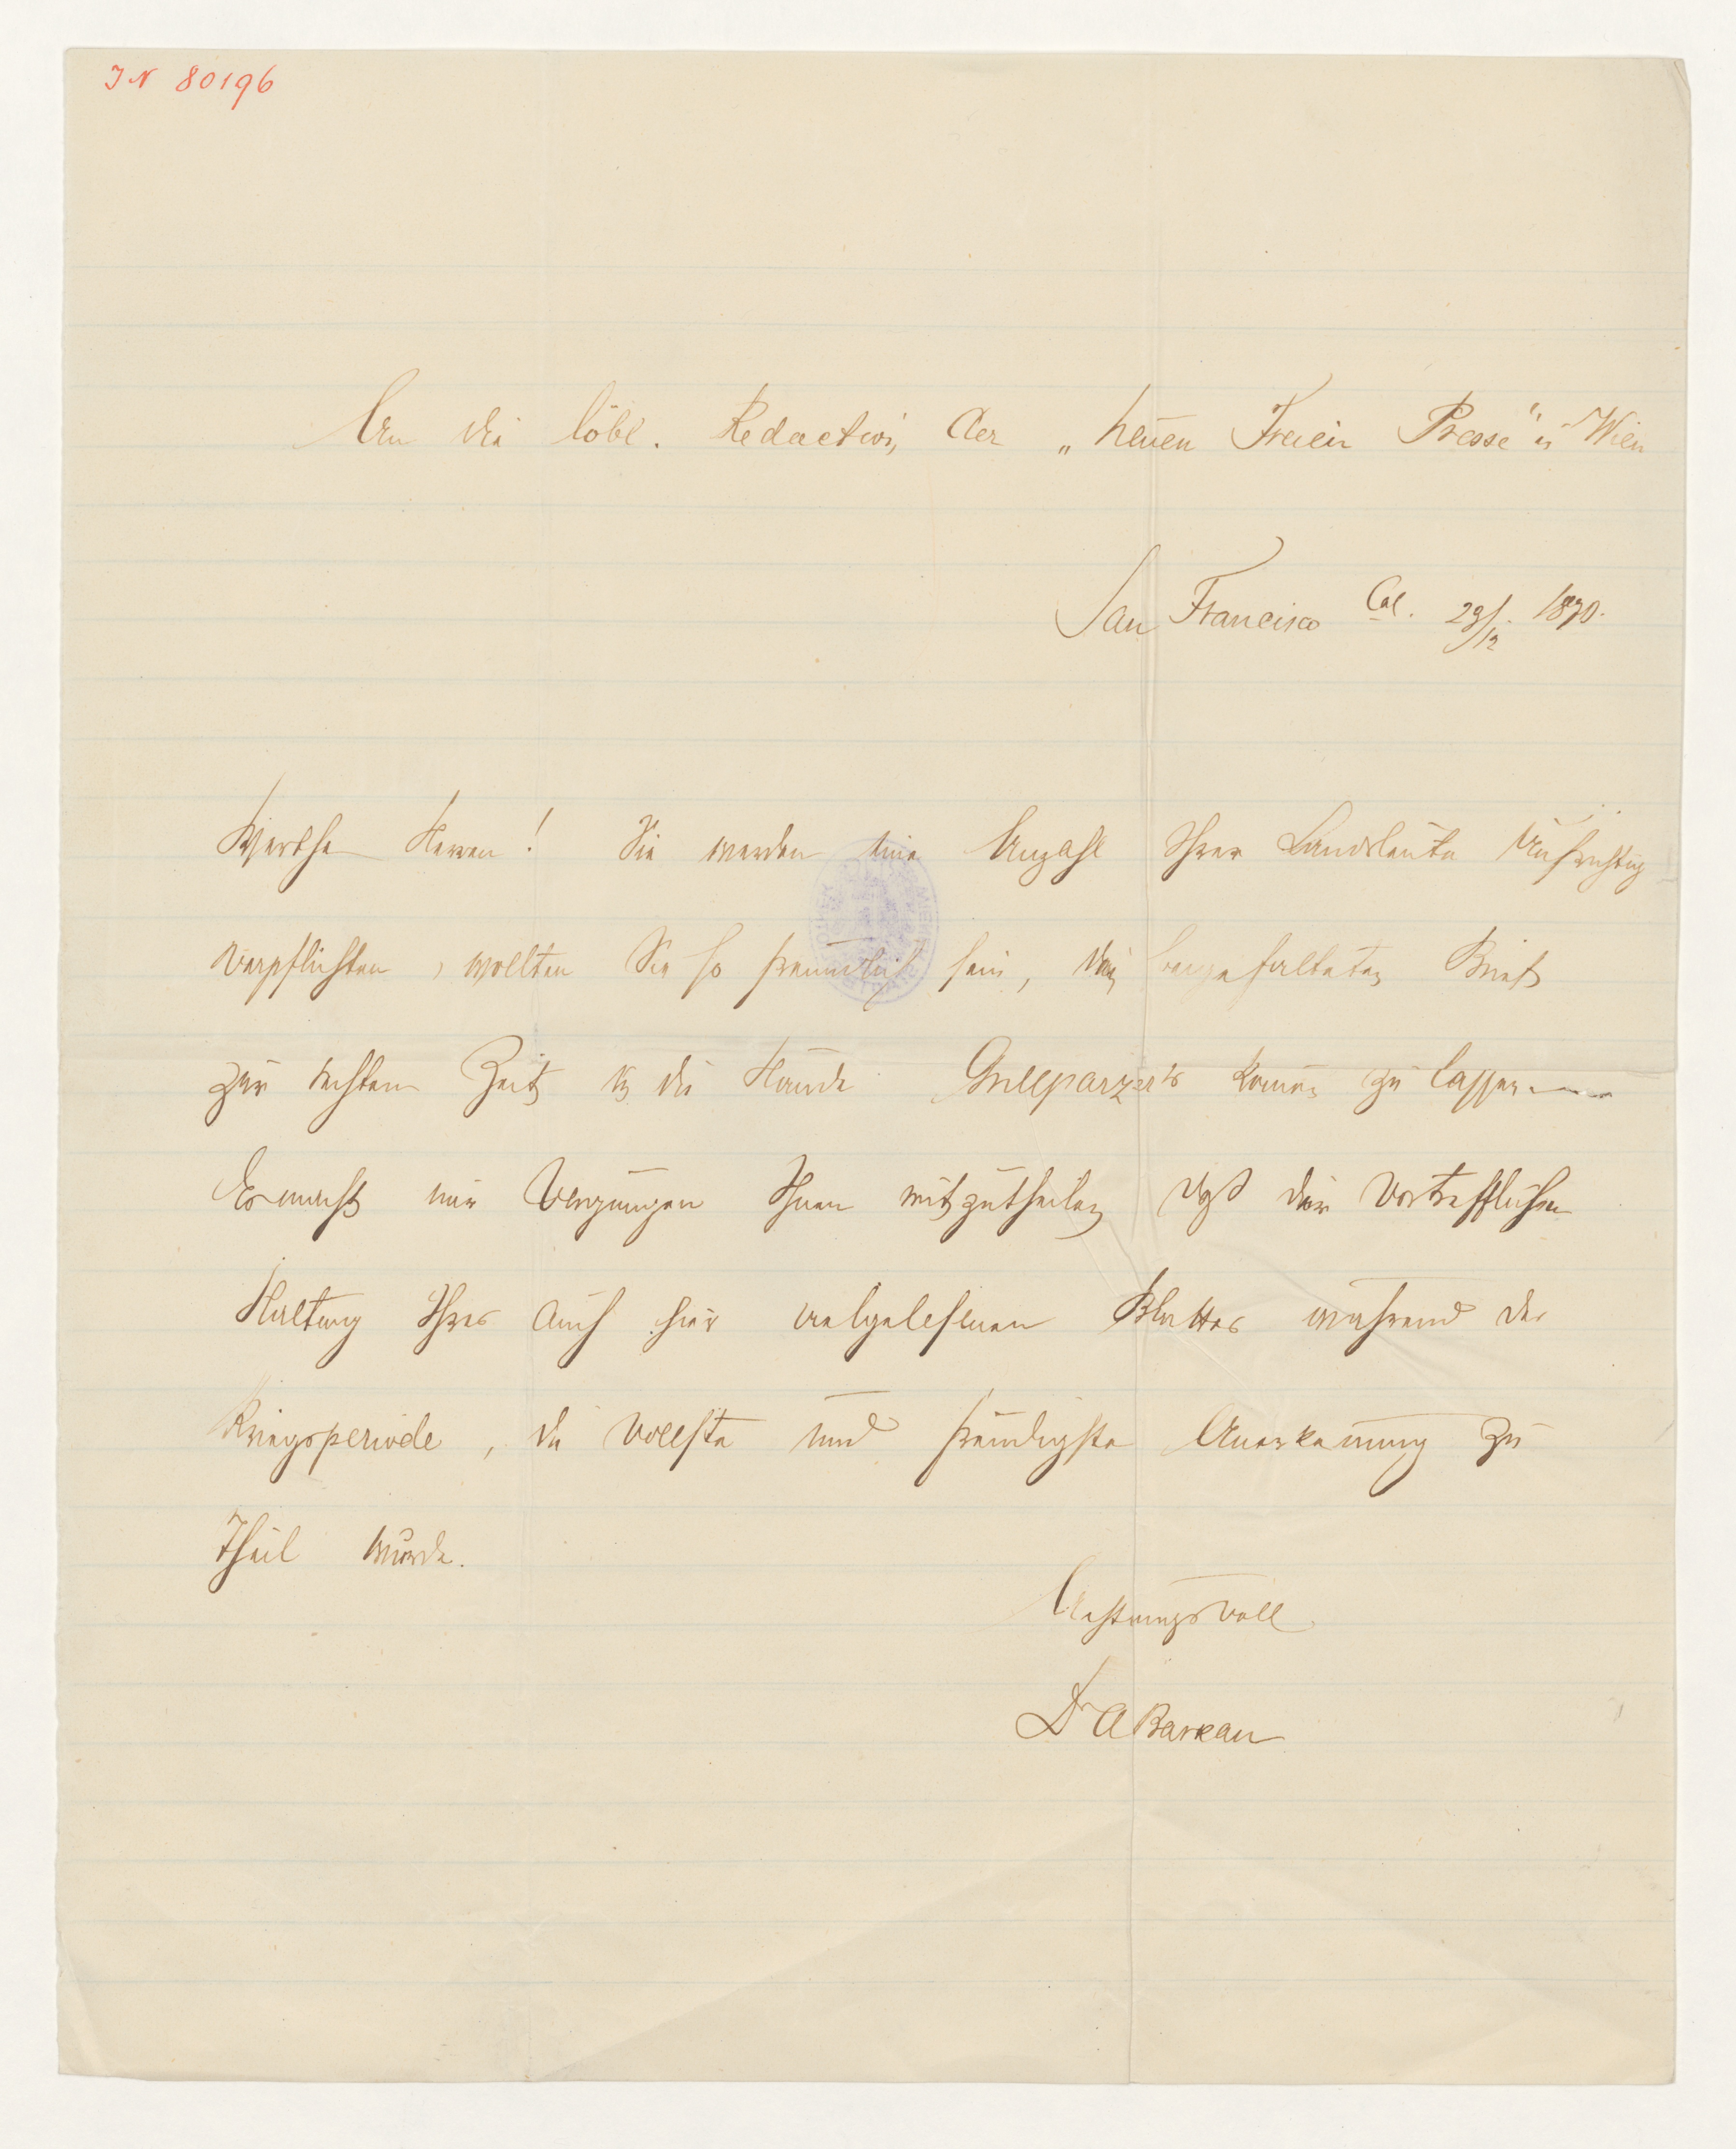 IN 80196
An die löbl. Redaction der „neuen Freien Presse" in Wien
San Francisco Cal. 29/12. 1870.
Werthe Herren! Sie werden eine Anzahl Ihrer Landsleute aufrichtig
verpflichten, wollten Sie so freundlich sein, den Brief
zur rechten Zeit in die Hände Grillparzer's kommen zu lassen
Es macht mir Vergnügen Ihnen mitzutheilen daß der vortrefflichen
Haltung Ihres auch hier vielgelesenen Blattes während der
Kriegsperiode, die vollste und freudigste Anerkennung zu
Theil wurde.
Achtungsvoll
Dr A Barkan